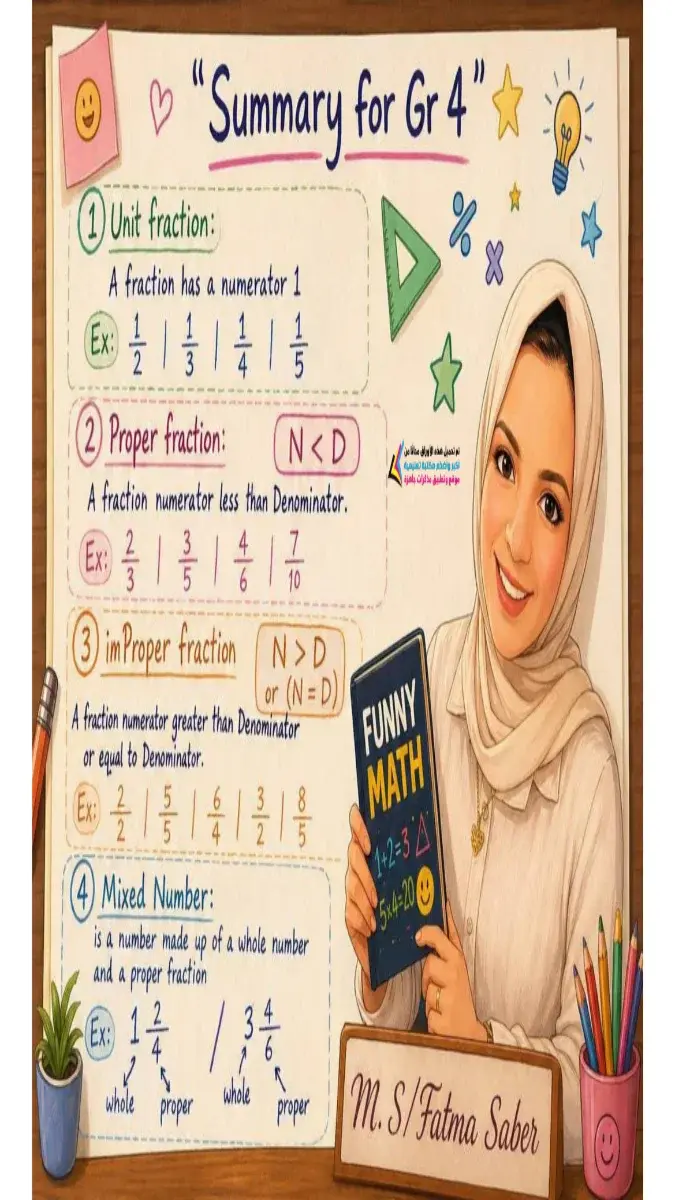 "Summary for Gr 4"
1 Unit fraction:
A fraction has a numerator 1
Ex: 1/2 | 1/3 | 1/4 | 1/5
2 Proper fraction:
N < D
A fraction numerator less than Denominator.
Ex: 2/3 | 3/5 | 4/6 | 7/10
3 imProper fraction
N > D
or (N = D)
A fraction numerator greater than Denominator
or equal to Denominator.
Ex: 2/2 | 5/5 | 6/4 | 3/2 | 8/5
4 Mixed Number:
is a number made up of a whole number
and a proper fraction
Ex: 1 2/4 / 3 4/6
whole proper whole proper
تم تحميل هذه الأوراق مجانا من
اكبر واضخم مكتبة تعليمية
موقع وتطبيق مذكرات جاهزة
FUNNY
MATH
1+2=3
5x4=20
M.S/Fatma Saber
% x